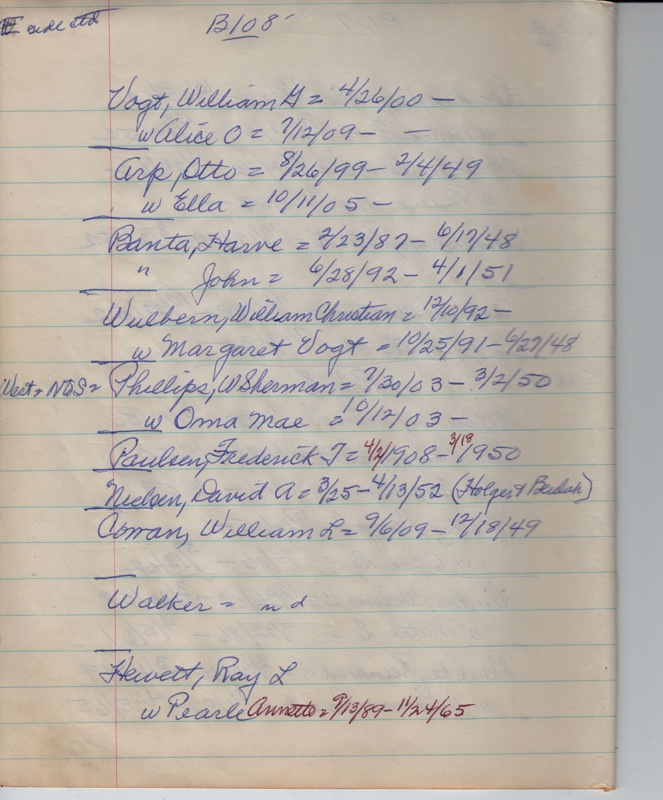 B108
Vogt, William H = 4/26/00 —
w Alice O = 7/12/09 — —
Arp, Otto = 8/26/99 - 2/4/49
w Ella = 10/11/05 -
Banta, Harve = 2/23/87 - 6/17/48
" John = 6/28/92 - 4/1/51
Wulbern, William Christian = 12/10/92 -
w Margaret Vogt = 10/25/91 - 6/27/48
West = NGS = Phillips, W Sherman = 7/20/03 - 3/2/50
w Oma Mae = 10/12/03 -
Paulsen, Frederick T = 4/2/1908 - 3/18/1950
Nielsen, David A = 3/25 - 4/13/52 (Holger &
Cowan, William L = 9/6/09 - 12/18/49
Walker = nd
Hewett, Ray L
w Pearle Annette = 9/13/89 - 11/24/65